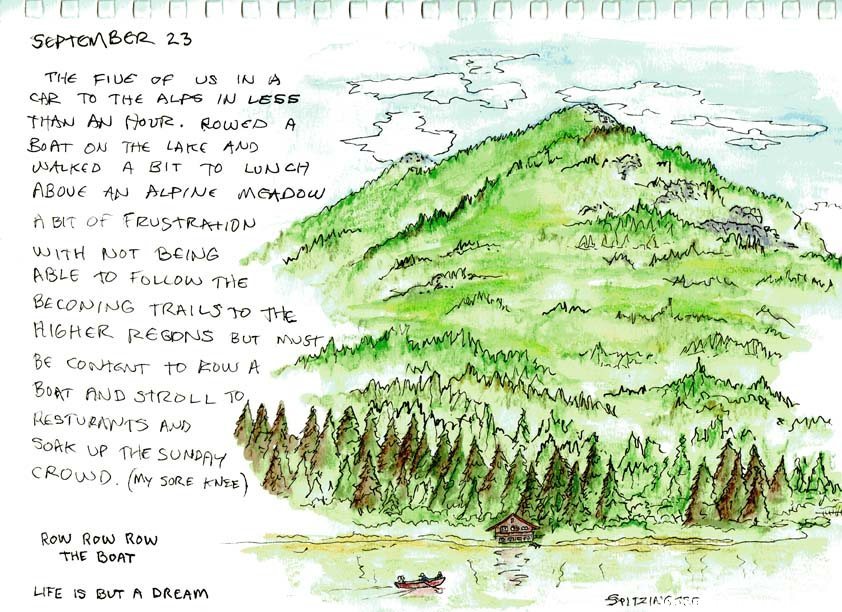 SEPTEMBER 23
THE FIVE OF US IN A
CAR TO THE ALPS IN LESS
THAN AN HOUR. ROWED A
BOAT ON THE LAKE AND
WALKED A BIT TO LUNCH
ABOVE AN ALPINE MEADOW
A BIT OF FRUSTRATION
WITH NOT BEING
ABLE TO FOLLOW THE
BECONING TRAILS TO THE
HIGHER REGONS BUT MUST
BE CONTENT TO ROW A
BOAT AND STROLL TO
RESTURANTS AND
SOAK UP THE SUNDAY
CROWD. (MY SORE KNEE)
ROW ROW ROW
THE BOAT
LIFE IS BUT A DREAM
SPITZINGSEE